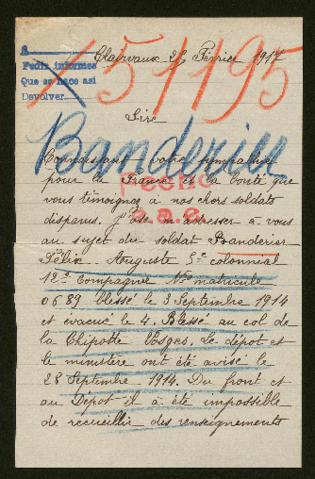 A
Pedir informes
Que se hace asi
Devolver.
51195
Clairvaux 26 Février 1917
Sire
Banderier
Connaissant votre sympathie
pour la France et la bonté que
vous témoignez à nos chers soldats
disparus. J'ose m'adresser à vous
au sujet du soldat Banderier
Félix-Auguste 5e colonial
12e Compagnie No matricule
0689 blessé le 3 Septembre 1914
et évacué le 4. Blessé au col de
la Chipotte Vosges. Le dépôt et
le ministère ont été avisé le
28 Septembre 1914. Du front et
au Dépôt il a été impossible
de recueillir des renseignements